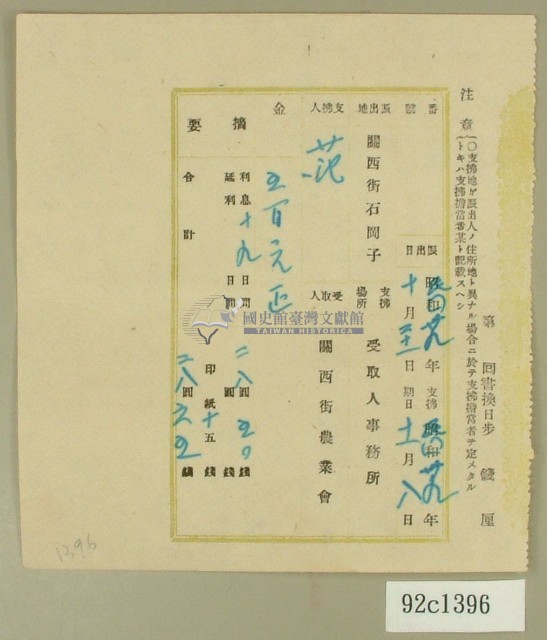 第 回書換日步 錢 厘
注意
(○支拂地ガ振出人ノ住所地ト異ナル場合ニ於テ支拂擔當者ヲ定メタル
トキハ支拂擔當者某ト記載スヘシ)
番號
振出日 昭和 年 十月 日
支拂期日 昭和 年 十一月八日
振出地 關西街石岡子
支拂場所 受取人事務所
支拂人 范
受取人 關西街農業會
金 五百元正
摘要
利息 十九日間 二八圓五〇錢
延利 日間 圓 錢
印紙 十五錢
合計 二八圓六五錢
國史館臺灣文獻館
TAIWAN HISTORICA
1396
92c1396